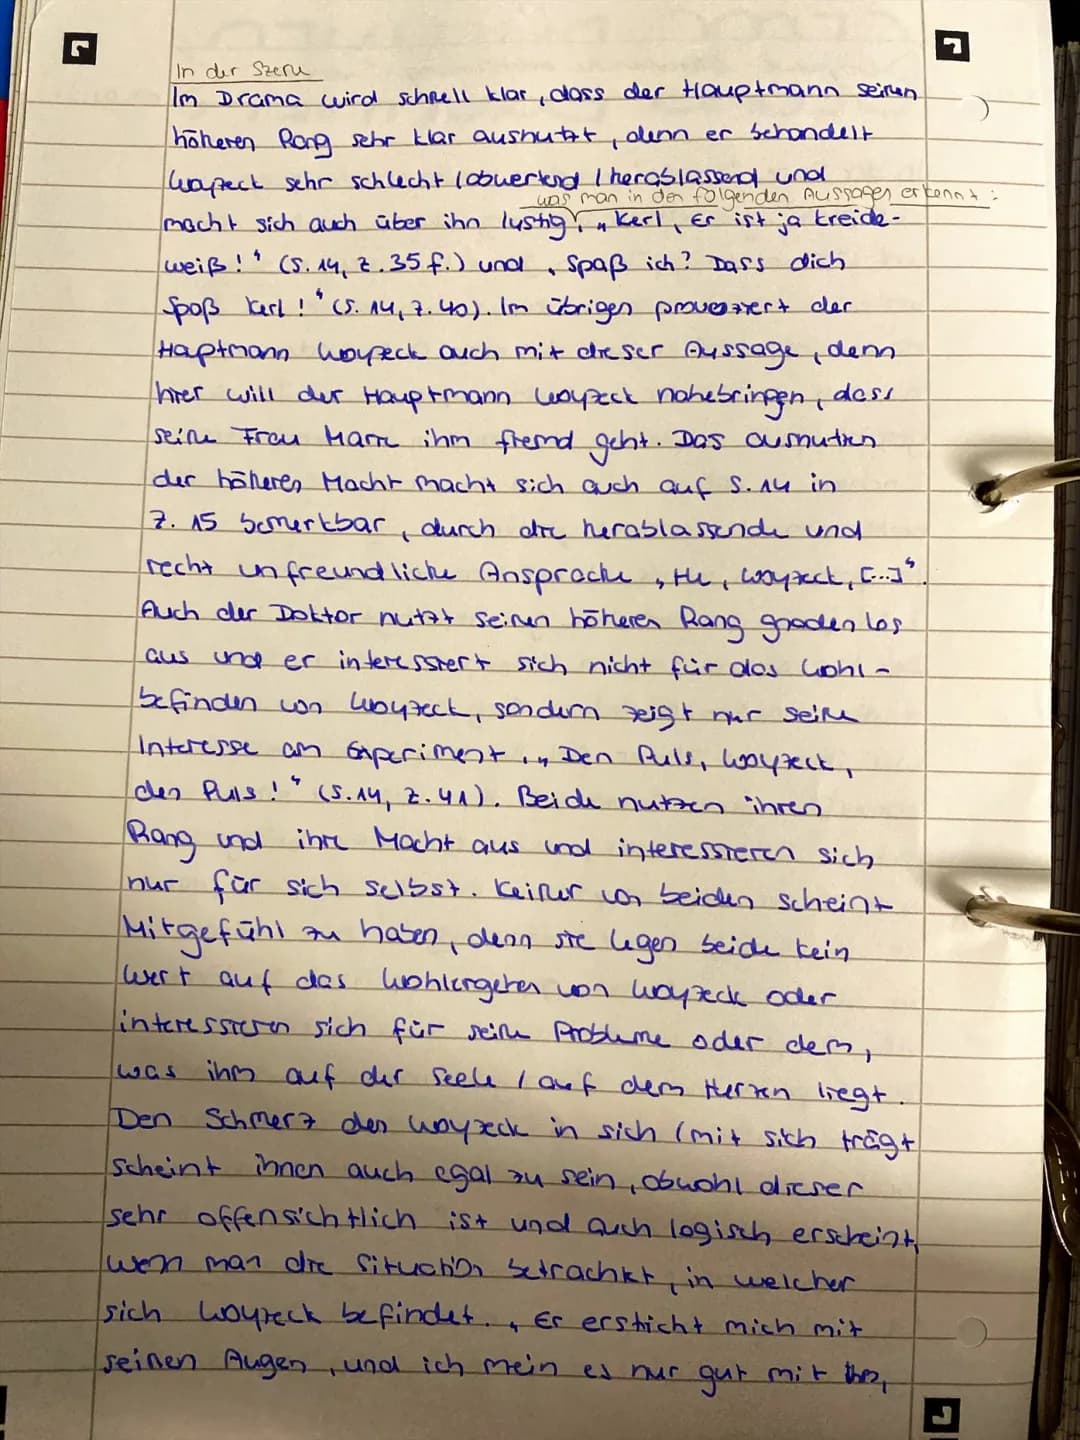 In der Szene
Im Drama wird schnell klar, dass der Hauptmann seinen
höheren Rang sehr klar ausnutzt, denn er behandelt
Woyzeck sehr schlecht / abwertend / herablassend und
was man in den folgenden Aussagen erkennt:
macht sich auch über ihn lustig, „Kerl, Er ist ja kreide-
weiß!“ (S. 14, Z. 35 f.) und „Spaß ich? Dass dich
Spaß Kerl!“ (S. 14, Z. 40). Im übrigen provoziert der
Haptmann Woyzeck auch mit dieser Aussage, denn
hier will der Hauptmann Woyzeck nahebringen, dass
seine Frau Marie ihm fremd geht. Das ausnutzen
der höheren Macht macht sich auch auf S. 14 in
Z. 15 bemerkbar, durch die herablassende und
recht unfreundliche Ansprache „He, Woyzeck, [...]“.
Auch der Doktor nutzt seinen höheren Rang gnadenlos
aus und er interessiert sich nicht für das Wohl-
befinden von Woyzeck, sondern zeigt nur seine
Interesse am Experiment, „Den Puls, Woyzeck,
den Puls!“ (S. 14, Z. 41). Beide nutzen ihren
Rang und ihre Macht aus und interessieren sich
nur für sich selbst. Keiner von beiden scheint
Mitgefühl zu haben, denn sie legen beide kein
Wert auf das Wohlergehen von Woyzeck oder
interessieren sich für seine Probleme oder dem,
was ihm auf der Seele / auf dem Herzen liegt.
Den Schmerz den Woyzeck in sich / mit sich trägt
scheint ihnen auch egal zu sein, obwohl dieser
sehr offensichtlich ist und auch logisch erscheint,
wenn man die Situation betrachtet, in welcher
sich Woyzeck befindet. „Er ersticht mich mit
seinen Augen, und ich mein es nur gut mit ihm,